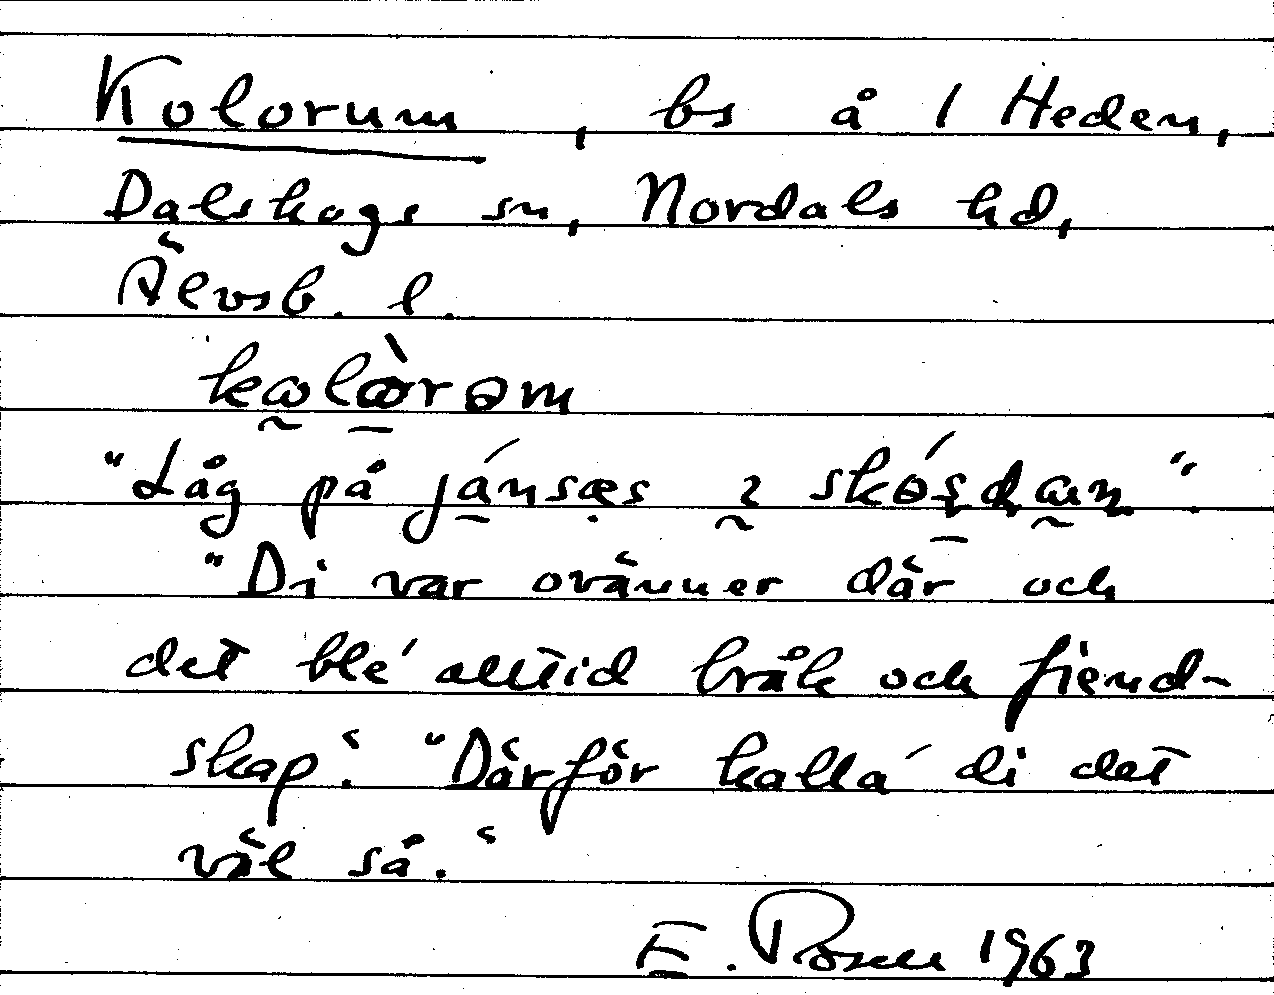 Kolorum, bs å 1 Heden,
Dalskogs sn, Nordals hd,
Älvsb. l.
"Låg på
"Di var ovänner där och
det ble' alltid bråk och fiend-
skap". "Därför kalla' di det
väl så."
E. 1963